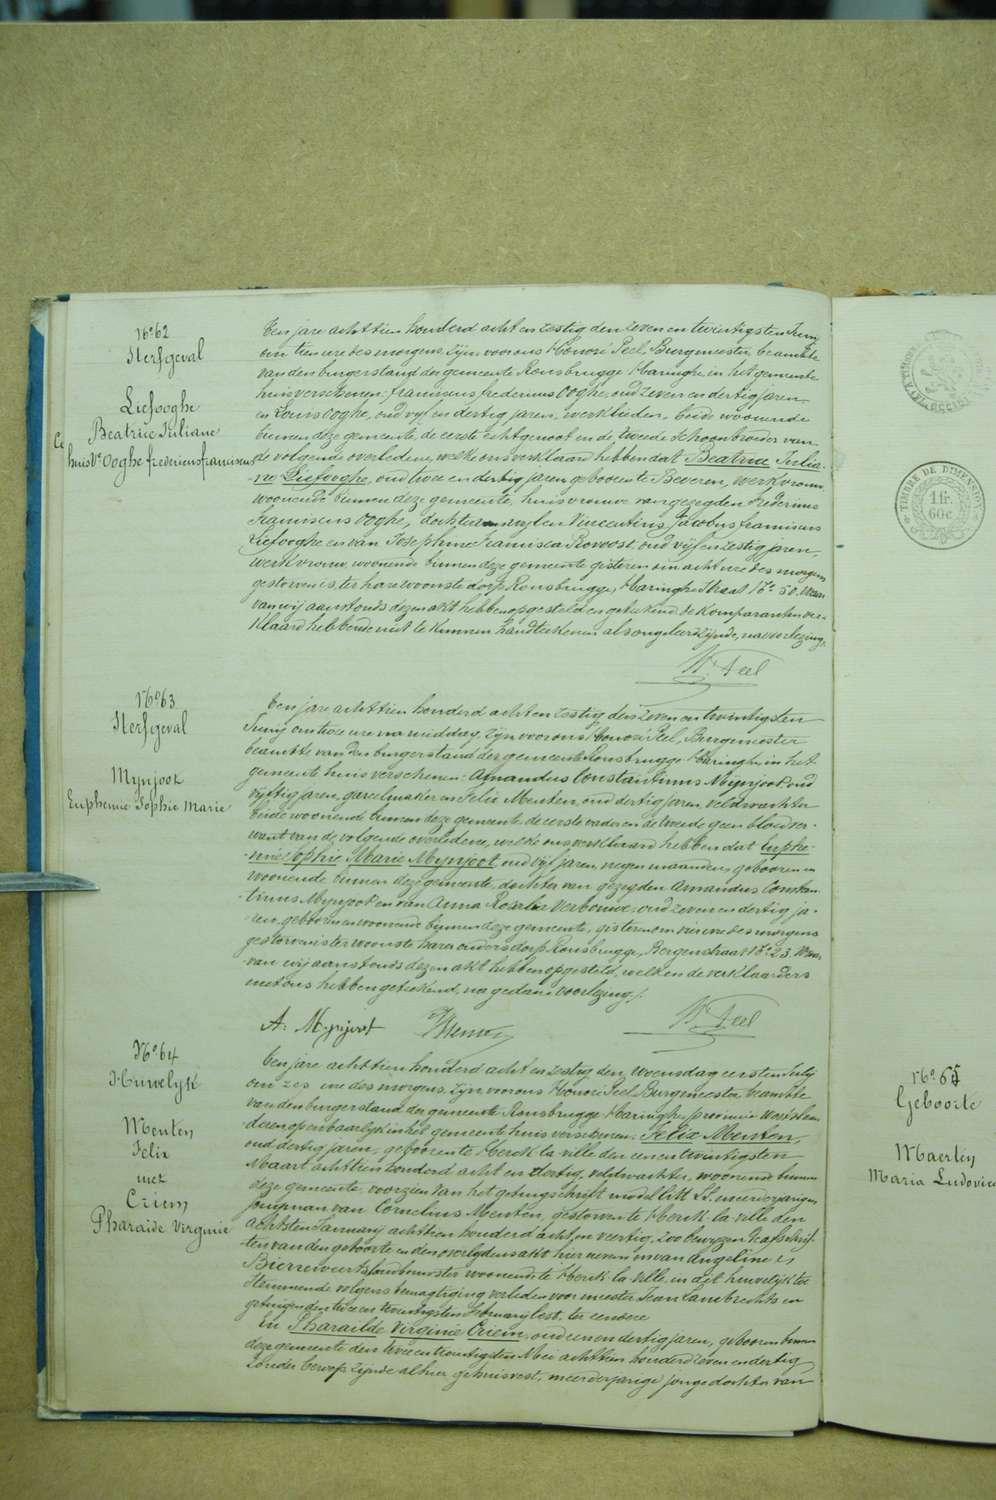 N.o 62
Sterfgeval
Liefooghe
Beatrice Juliane
huisve Ooghe fredericus franciscus
Een jare acht tien honderd acht en zestig den zeven en twintigsten Juny
om tien ure des morgens zyn voor ons Honoré Peel Burgemeester, beambte
van den burgerstand der gemeente Rousbrugge-Haringhe, in het gemeente
huis verschenen franciscus fredericus Ooghe, oud zeven en dertig jaren
en Louis Ooghe, oud vyf en dertig jaren, werklieden, beide woonende
binnen deze gemeente, de eerste echtgenoot en de tweede schoonbroeder van
de volgende overledene, welke ons verklaard hebben dat Beatrice Julia-
-ne Liefooghe, oud twee en dertig jaren geboren te Beveren, werkvrouw
woonende binnen deze gemeente, huisvrouwe van gezegden fredericus
franciscus Ooghe, dochter van Vincentius Jacobus franciscus
Liefooghe en van Josephine Francisca Rovoost, oud vyf en zestig jaren,
werkvrouw, woonende binnen deze gemeente gisteren om acht ure des morgens
gestorven is, ter hare woonste dorp Rousbrugge, Haringhe Straat N.o 50. Waar
van wy aanstonds dezen akt hebben opgesteld en geteekend, de komparanten ver-
klaard hebbende niet te kunnen handteekenen als ongeleerd zynde, na voorlezing.
H. Peel
N.o 63
Sterfgeval
Mynjoot
Euphemie Sophie Marie
Een jare acht tien honderd acht en zestig den zeven en twintigsten
Juny om twee ure na middag, zyn voor ons Honoré Peel, Burgemeester
beambte van den burgerstand der gemeente Rousbrugge-Haringhe in het
gemeente huis verschenen: Amandus Constantinus Mynjoot oud
vyftig jaren, gareelmaker en Felix Menten, oud dertig jaren, veldwachter
beide woonende binnen deze gemeente, de eerste vader en de tweede geen bloedver-
want van de volgende overledene, welke ons verklaard hebben dat Euphe-
-mie Sophie Marie Mynjoot, oud vyf jaren, negen maanden, geboren en
woonende binnen deze gemeente, dochter van gezegden Amandus Constan-
tinus Mynjoot en van Anna Rosalia Verbouwe, oud zeven en dertig ja-
-ren, geboren en woonende binnen deze gemeente, gisteren om ure des morgens
gestorven is ter woonste harer ouders dorp Rousbrugge, Bergenstraat N.o 23. Waar
van wy aanstonds dezen akt hebben opgesteld, welken de verklaarders
met ons hebben geteekend, na gedane voorlezing./.
A. Mynjoot
H. Peel
N.o 64
Huwelyk
Menten
Felix
met
Criem
Pharaïde Virginie
Een jare acht tien honderd acht en zestig den, woensdag eersten July
om zes ure des morgens, zyn voor ons Honoré Peel, Burgemeester, beambte
van den burgerstand der gemeente Rousbrugge-Haringhe, provincie Westvlaan-
deren openbaarlyk in het gemeente huis verschenen: Felix Menten,
oud dertig jaren, geboren te Herck-la-ville den een en twintigsten
Maart achttien honderd acht en dertig, veldwachter, woonende binnen
deze gemeente, voorzien van het getuigschrift model litt. meerderjarigen
jongman van Cornelius Menten, gestorven te Herck-la-ville den
achtsten January achttien honderd acht en veertig, zoo bewyzen de afschrif-
ten van den geboorte en den overlydens akt hier neven en van Angeline
Bierreweerts, landbouwster woonende te Herck-la-ville, in dit huwelyk toe
stemmende volgens bemagtiging verleden voor meester Jean Lambrechts en
getuigen den twee en twintigsten february lest, ter eendere
En Pharaïlde Virginie Criem, oud een en dertig jaren, geboren binnen
deze gemeente den twee en twintigsten Mei achttien honderd zeven en dertig
zonder beroep zynde alhier gehuisvest, meerderjarige jonge dochter van
TIMBRE DE DIMENSION
1fr.
60c
N.o 65
Geboorte
Maerten
Maria Ludovica